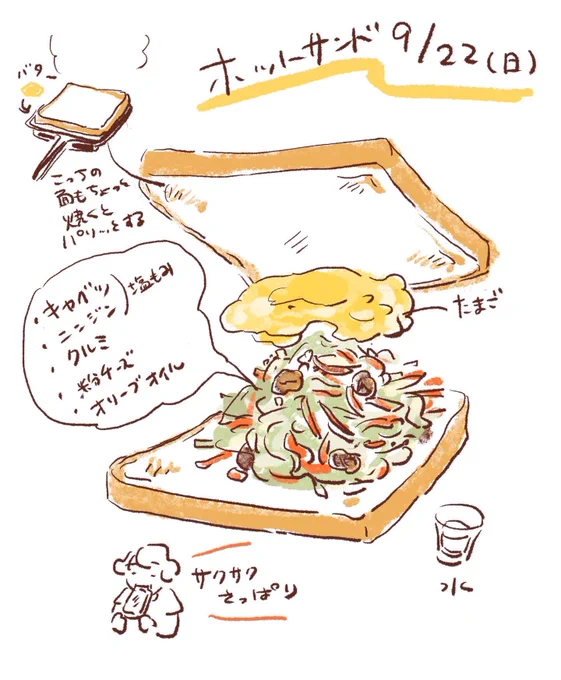 ホットサンド 9/22(日)
バター
こっちの
面もちょっと
焼くと
パリッとする
・キャベツ
・ニンジン
塩もみ
・クルミ
・粉チーズ
・オリーブオイル
たまご
サクサク
さっぱり
水